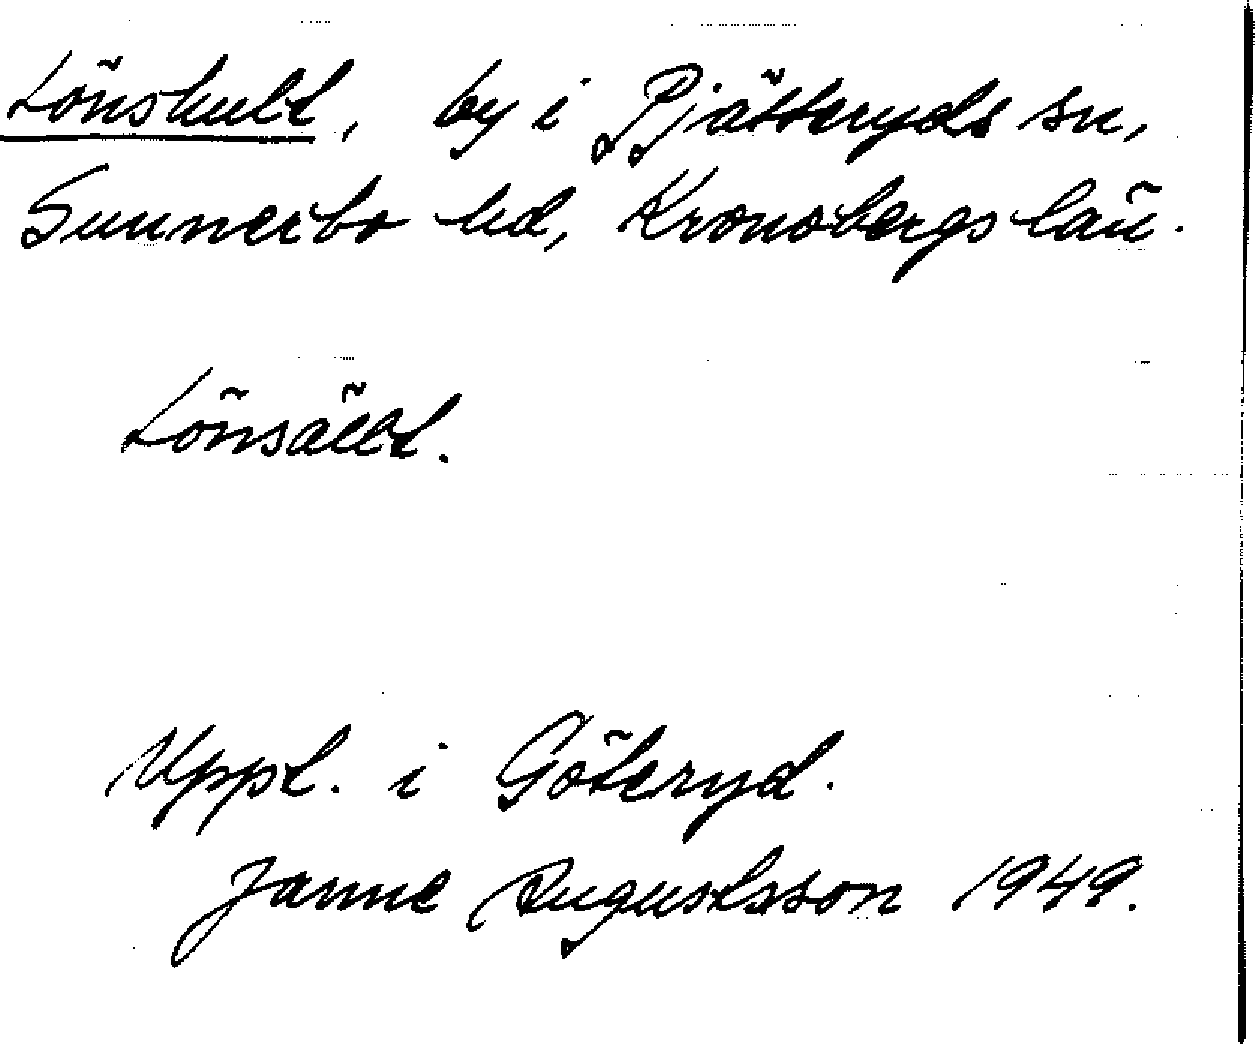 Lönshult, by i Pjätteryds sn,
Sunnerbo hd, Kronobergs län.
Lönsällt.
Uppt. i Göteryd.
Janne Augustsson 1949.